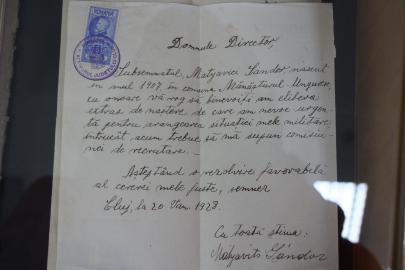 ROMANIA
Domnule Director,
Subsemnatul, Matyavici Sandor, nascut
in anul 1907, in comuna Mănăşturul-Unguresc,
cu onoare vă rog să binevoiţi a-mi elibera
extras de naştere de care am nevoe urgen-
tă pentru aranjarea situatiei mele militare
întrucât acum trebue să mă supun comisiu-
nei de recrutare. —
Aşteptând o rezolvire favorabilă
al cererei mele juste, semnez
Cluj, la 20 Ian. 1928.
Cu toată stima:
Matyavits Sándor